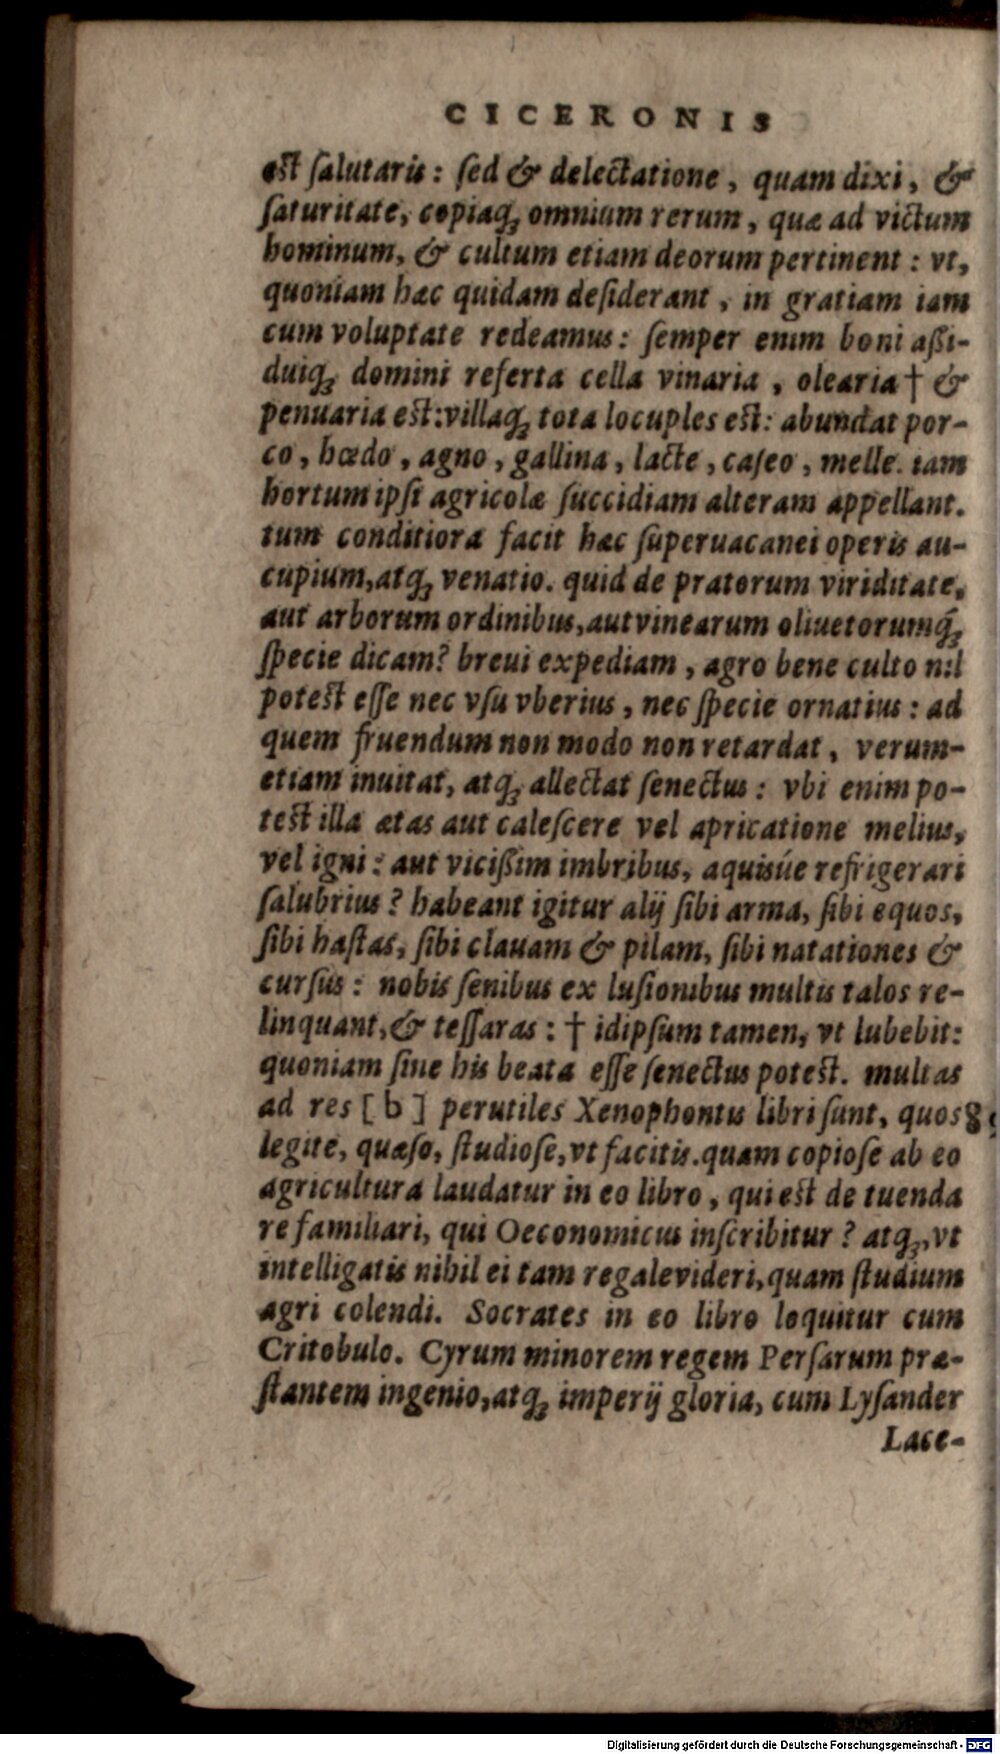 CICERONIS
est ſalutaris: ſed & delectatione, quam dixi, &
ſaturitate, copiaq́; omnium rerum, quæ ad victum
hominum, & cultum etiam deorum pertinent: vt,
quoniam hæc quidam deſiderant, in gratiam iam
cum voluptate redeamus: ſemper enim boni aßi-
duiq́; domini referta cella vinaria, olearia † &
penuaria est: villaq́; tota locuples est: abundat por-
co, hœdo, agno, gallina, lacte, caſeo, melle. iam
hortum ipſi agricolæ ſuccidiam alteram appellant.
tum conditiora facit hæc ſuperuacanei operis au-
cupium, atq; venatio. quid de pratorum viriditate,
aut arborum ordinibus, aut vinearum oliuetorumq́;
ſpecie dicam? breui expediam, agro bene culto nil
potest eſſe nec vſu vberius, nec ſpecie ornatius: ad
quem fruendum non modo non retardat, verum-
etiam inuitat, atq; allectat ſenectus: vbi enim po-
test illa ætas aut caleſcere vel apricatione melius,
vel igni: aut vicißim imbribus, aquisúe refrigerari
ſalubrius? habeant igitur alij ſibi arma, ſibi equos,
ſibi haſtas, ſibi clauam & pilam, ſibi natationes &
curſus: nobis ſenibus ex luſionibus multis talos re-
linquant, & teſſaras: † idipſum tamen, vt lubebit:
quoniam ſine his beata eſſe ſenectus potest. multas
ad res [b] perutiles Xenophontis libri ſunt, quos
legite, quæſo, ſtudioſe, vt facitis. quam copioſe ab eo
agricultura laudatur in eo libro, qui est de tuenda
re familiari, qui Oeconomicus inſcribitur? atq;, vt
intelligatis nihil ei tam regale videri, quam ſtudium
agri colendi. Socrates in eo libro loquitur cum
Critobulo. Cyrum minorem regem Perſarum præ-
ſtantem ingenio, atq; imperij gloria, cum Lyſander
Lace-
Digitalisierung gefördert durch die Deutsche Forschungsgemeinschaft - DFG